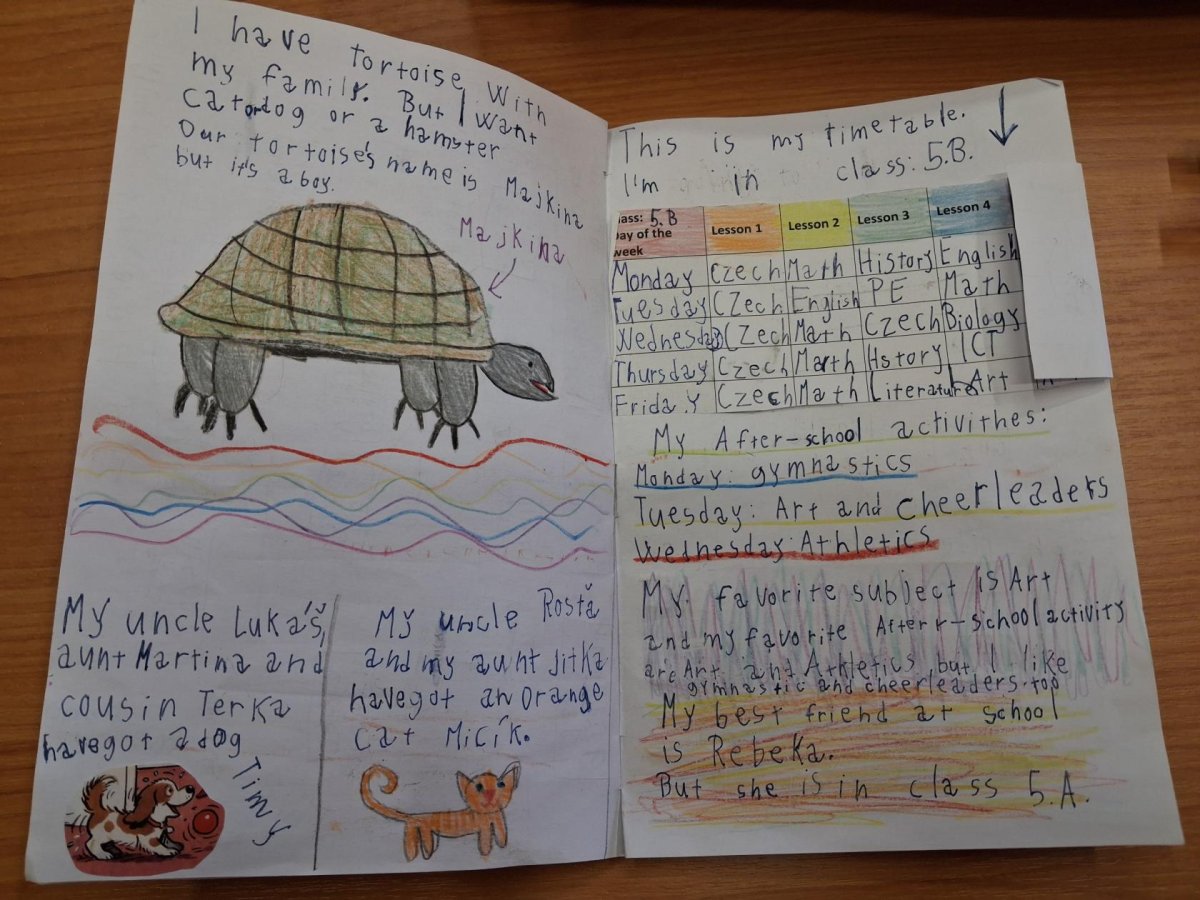 I have tortoise with
my family. But I want
cat or dog or a hamster
Our tortoise's name is Majkina
but it's a boy.
Majkina
My uncle Lukáš,
aunt Martina and
cousin Terka
havegot a dog
Timy
My uncle Rosťa
and my aunt Jitka
havegot an orange
cat Micík.
This is my timetable.
I'm in class: 5.B.
lass: 5.B
Day of the
week
Lesson 1 Lesson 2 Lesson 3 Lesson 4
Monday Czech Math History English
Tuesday Czech English PE Math
Wednesday Czech Math Czech Biology
Thursday Czech Math Hstory ICT
Friday Czech Math Literature Art
My After-school activithes:
Monday: gymnastics
Tuesday: Art and cheerleaders
Wednesday: Athletics
My favorite subject is Art
and my favorite After r-school activity
are Art and Athletics, but I like
gymnastic and cheerleaders top
My best friend at school
is Rebeka.
But she is in class 5.A.